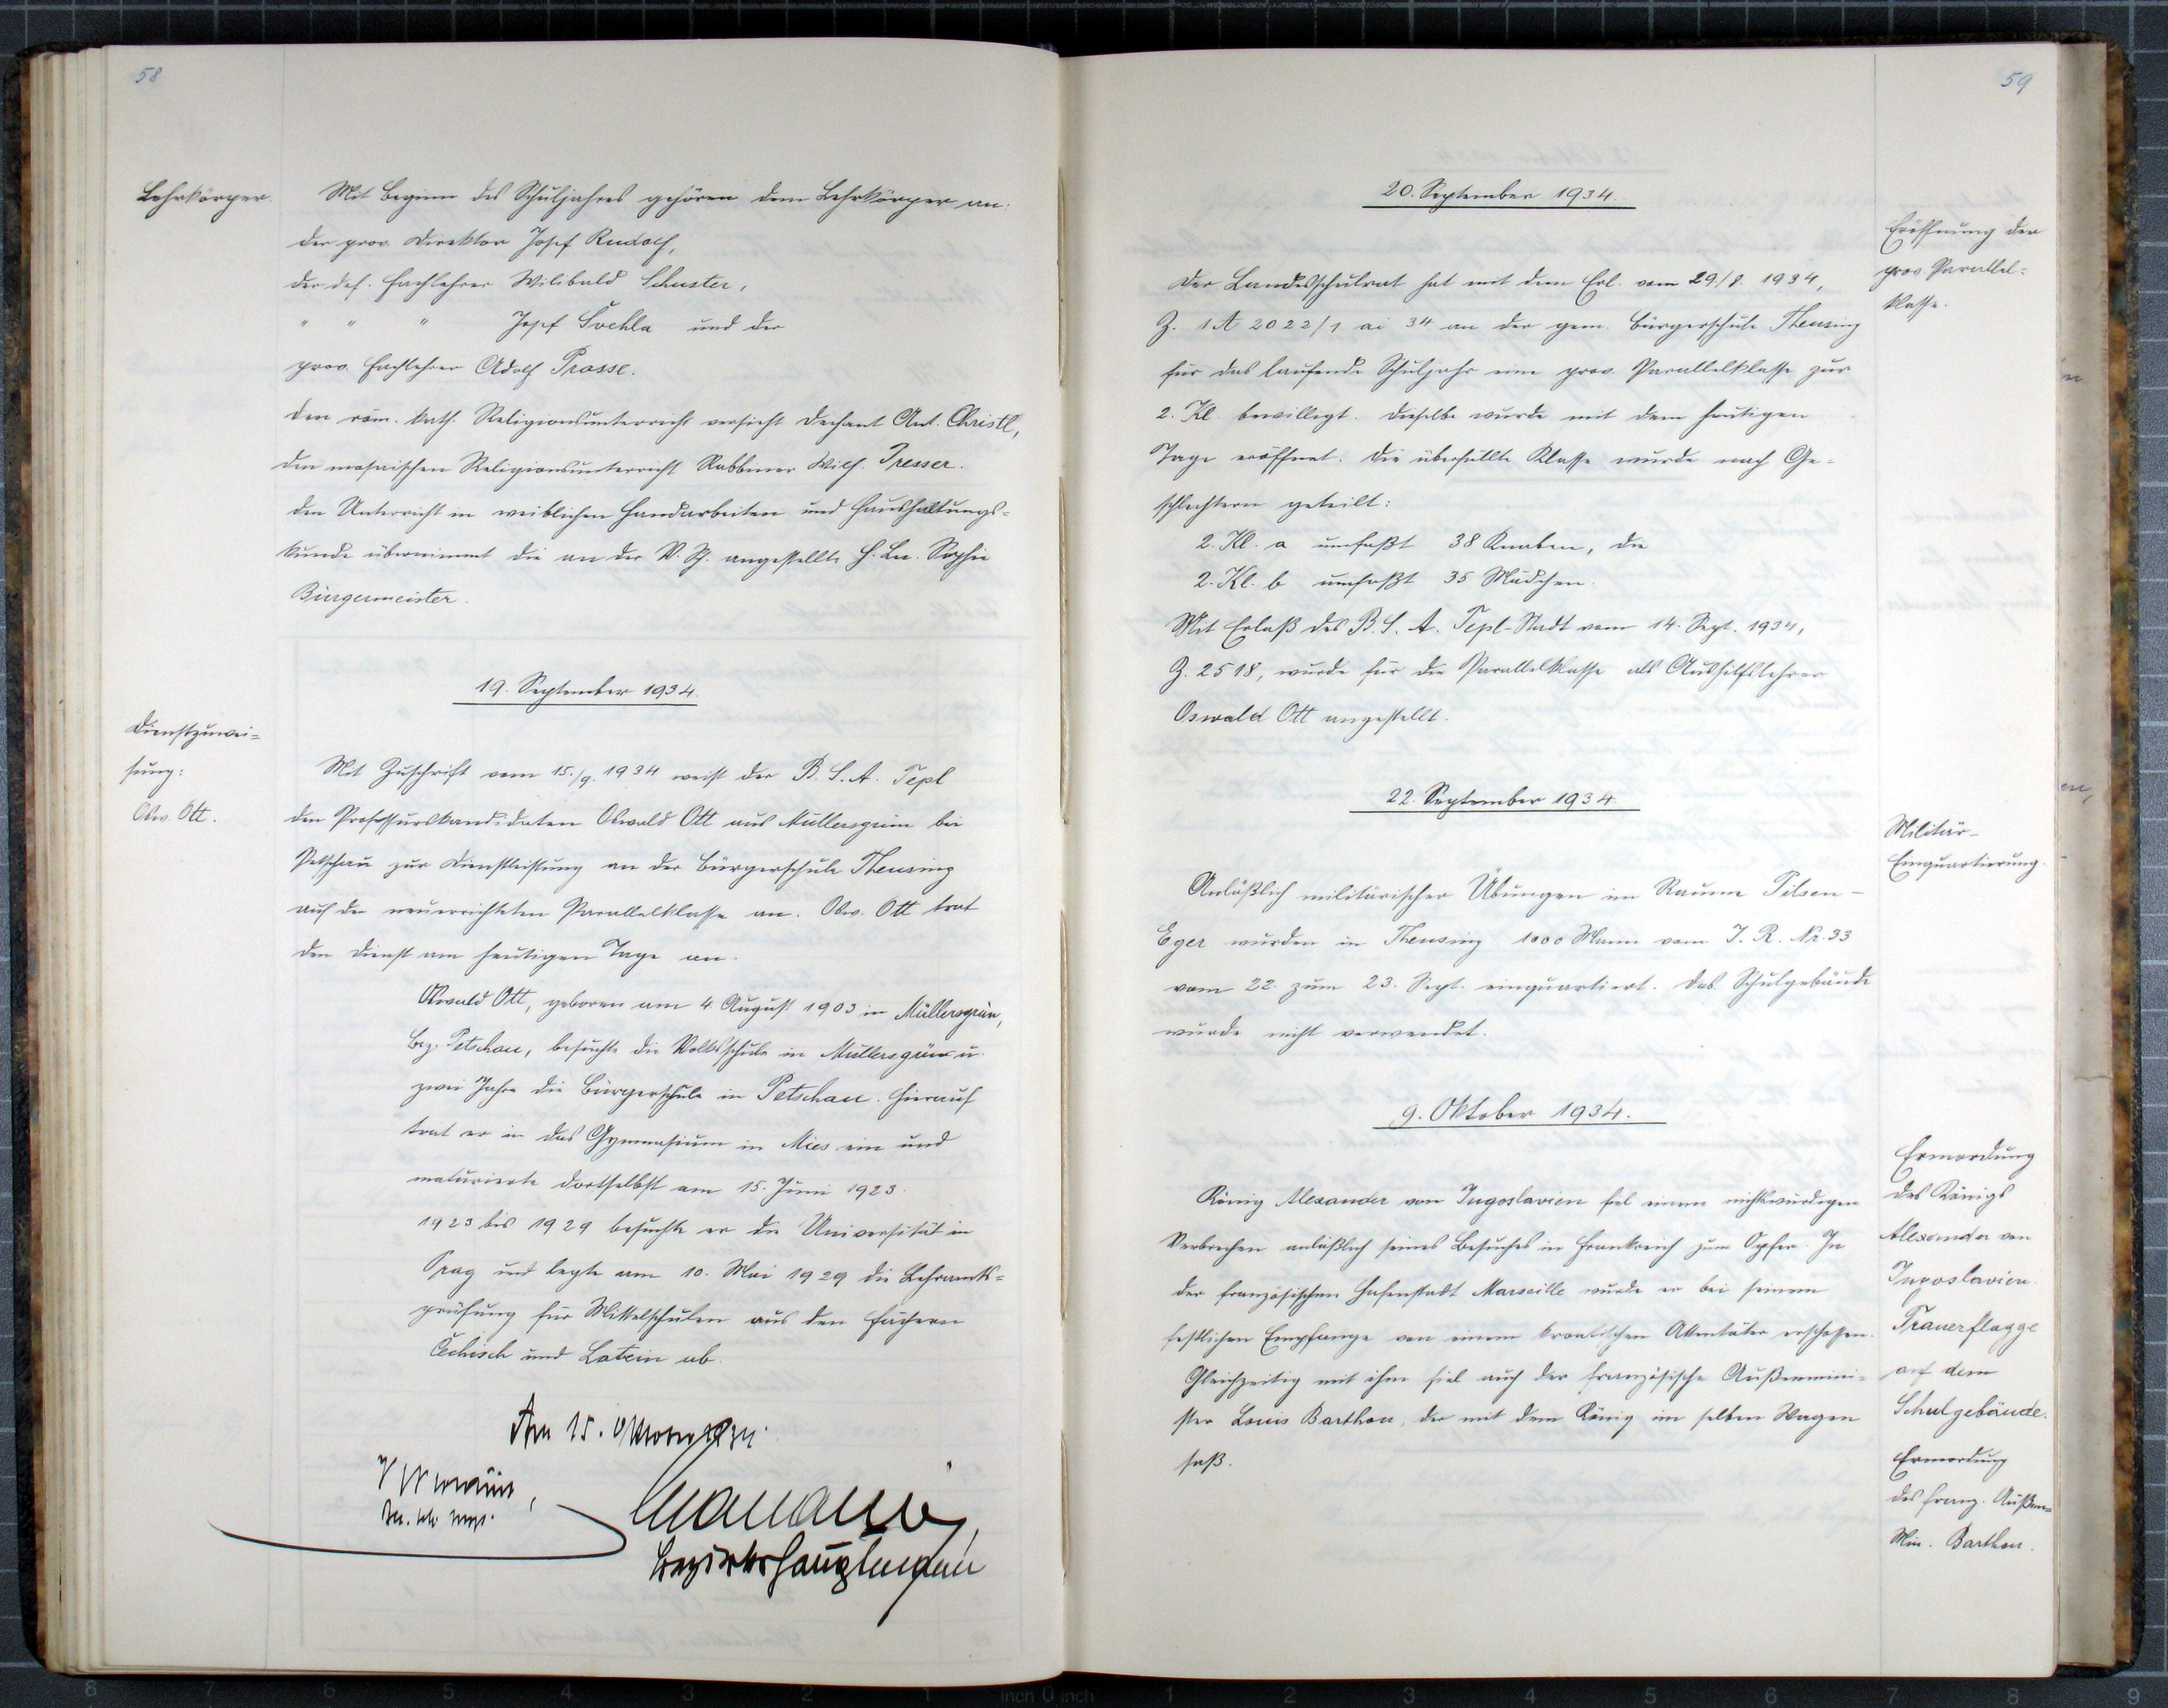 58
Lehrkörper.
Mit Beginn des Schuljahres gehören dem Lehrkörper an:
der prov. Direktor Josef Rudolf,
der def. Fachlehrer Wilibald Schuster,
" " " Josef Švehla und der
prov. Fachlehrer Adolf Prosse.
Den röm. kath. Religionsunterricht versieht Dechant Ant. Christl,
den mosaischen Religionsunterricht Rabbiner Wilh. Presser.
Den Unterricht in weiblichen Handarbeiten und Haushaltungs=
kunde übernimmt die an der V. Sch. angestellte H. Ln. Sophie
Bürgermeister.
19. September 1934.
Dienstzuwei=
sung:
Osw. Ott.
Mit Zuschrift vom 15./9. 1934 weist der B. S. A. Tepl
den Professurskandidaten Oswald Ott aus Müllersgrün bei
Petschau zur Dienstleistung an der Bürgerschule Theusing
auf der neuerrichteten Parallelklasse an. Osw. Ott trat
den Dienst am heutigen Tage an.
Oswald Ott, geboren am 4. August 1903 in Müllersgrün,
Bez. Petschau, besuchte die Volksschule in Müllersgrün u.
zwei Jahre die Bürgerschule in Petschau. Hierauf
trat er in das Gymnasium in Mies ein und
maturierte dortselbst am 15. Juni 1923.
1923 bis 1929 besuchte er die Universität in
Prag und legte am 10. Mai 1929 die Lehramts=
prüfung für Mittelschulen aus den Fächern
Čechisch und Latein ab.
Am 15. Oktober 1934.
Bezirkshauptmann
59
20. September 1934.
Eröffnung der
prov. Parallel=
klasse.
Der Landesschulrat hat mit dem Erl. vom 29./8. 1934,
Z. I A 2022/1 ai 34 an der gem. Bürgerschule Theusing
für das laufende Schuljahr eine prov. Parallelklasse zur
2. Kl. bewilligt. Dieselbe wurde mit dem heutigen
Tage eröffnet. Die überfüllte Klasse wurde nach Ge=
schlechtern geteilt:
2. Kl. a umfaßt 38 Knaben, die
2. Kl. b umfaßt 35 Mädchen.
Mit Erlaß des B. S. A. Tepl-Stadt vom 14. Sept. 1934,
Z. 2518, wurde für die Parallelklasse als Aushilfslehrer
Oswald Ott angestellt.
22. September 1934.
Militär-
Einquartierung.
Anläßlich militärischer Übungen im Raume Pilsen-
Eger wurden in Theusing 1000 Mann vom I. R. Nr. 33
vom 22. zum 23. Sept. einquartiert. Das Schulgebäude
wurde nicht verwendet.
9. Oktober 1934.
Ermordung
des Königs
Alexander von
Jugoslavien.
Trauerflagge
auf dem
Schulgebäude.
Ermordung
des franz. Außen=
Min. Barthou.
König Alexander von Jugoslavien fiel einem nichtswürdigen
Verbrechen anläßlich seines Besuches in Frankreich zum Opfer. In
der französischen Hafenstadt Marseille wurde er bei seinem
festlichen Empfange von einem kroatischen Attentäter erschossen.
Gleichzeitig mit ihm fiel auch der französische Außenmini=
ster Louis Barthou, der mit dem König im selben Wagen
saß.